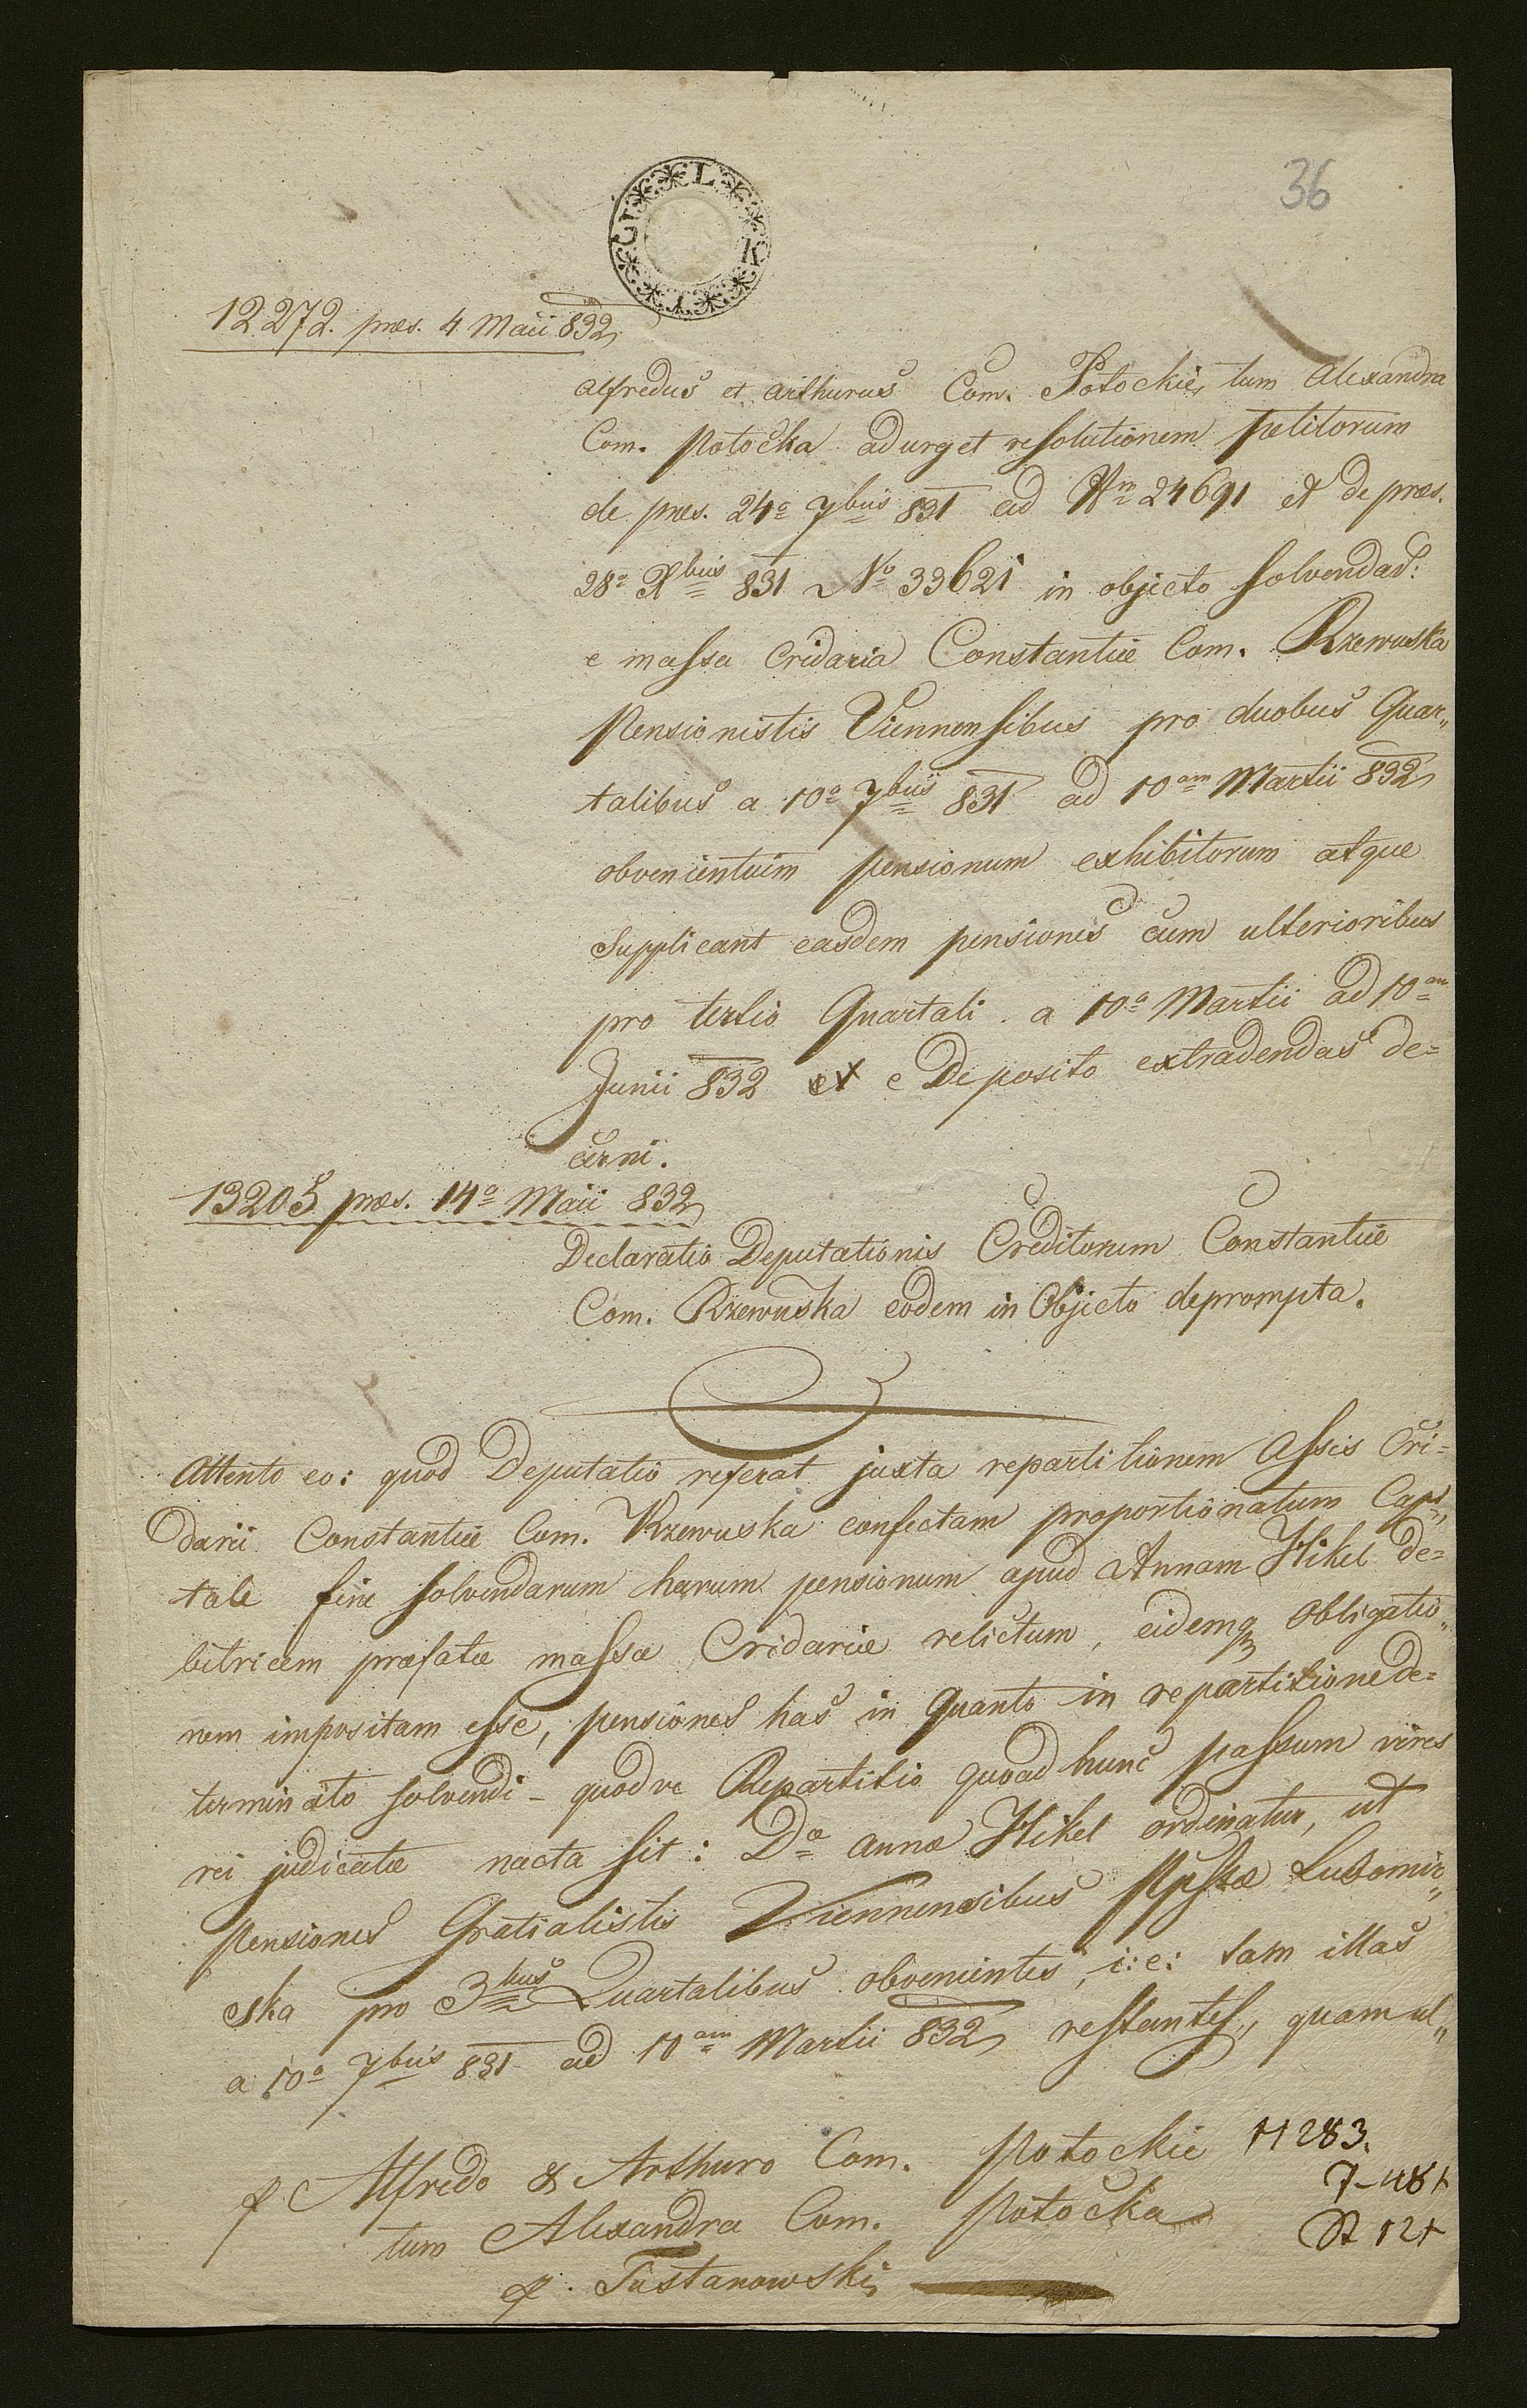 36
L K I G
12272. præs. 4 Maii 832
Alfredus et Arthurus Com. Potockie, tum Alexandra
Com. Potocka adurget resolutionem petitorum
de præs. 24a 7bris 831 ad Nrm 24691 et de præs.
28a Xbris 831 No 33621 in objecto solvendar:
e massa Cridaria Constantiæ Com. Rzewuska
Pensionistis Viennensibus pro duobus Quar„
talibus a 10a 7bris 831 ad 10am Martii 832
obvenientium pensionum exhibitorum atque
Supplicant easdem pensiones cum ulterioribus
pro tertio Quartali a 10a Martii ad 10am
Junii 832 ex e Deposito extradendas de=
cerni.
13205 præs. 14a Maii 832
Declaratio Deputationis Creditorum Constantiæ
Com. Rzewuska eodem in Objecto deprompta.
Attento eo: quod Deputatio referat juxta repartitionem Assis Cri=
darii Constantiæ Com. Rzewuska confectam proportionatum Capi„
tale fine solvendarum harum pensionum apud Annam Hikel de=
bitricem præfatæ massæ Cridariæ relictum, eidemq obligatio„
nem impositam esse, pensiones has in quanto in repartitione de=
terminato solvendi - quodve Repartitio quoad hunc passum vires
rei judicatæ nacta sit: Dæ Annæ Hikel ordinatur, ut
pensiones Gratialistis Viennensibus Ppssæ Lubomir„
ska pro 3bus Quartalibus obvenientes, i: e: tam illas
a 10a 7bris 831 ad 10am Martii 832 restantes, quam ul„
p Alfredo & Arthuro Com. Potockie 11283.
7-48x
tum Alexandra Com. Potocka
St 12x
p. Tustanowski